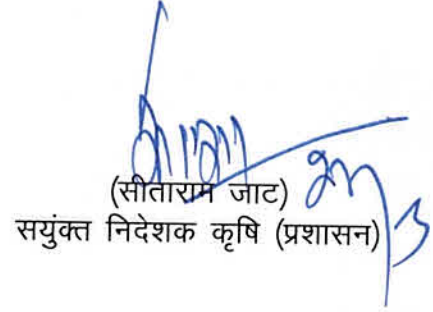 (सीताराम जाट)
सयुंक्त निदेशक कृषि (प्रशासन)